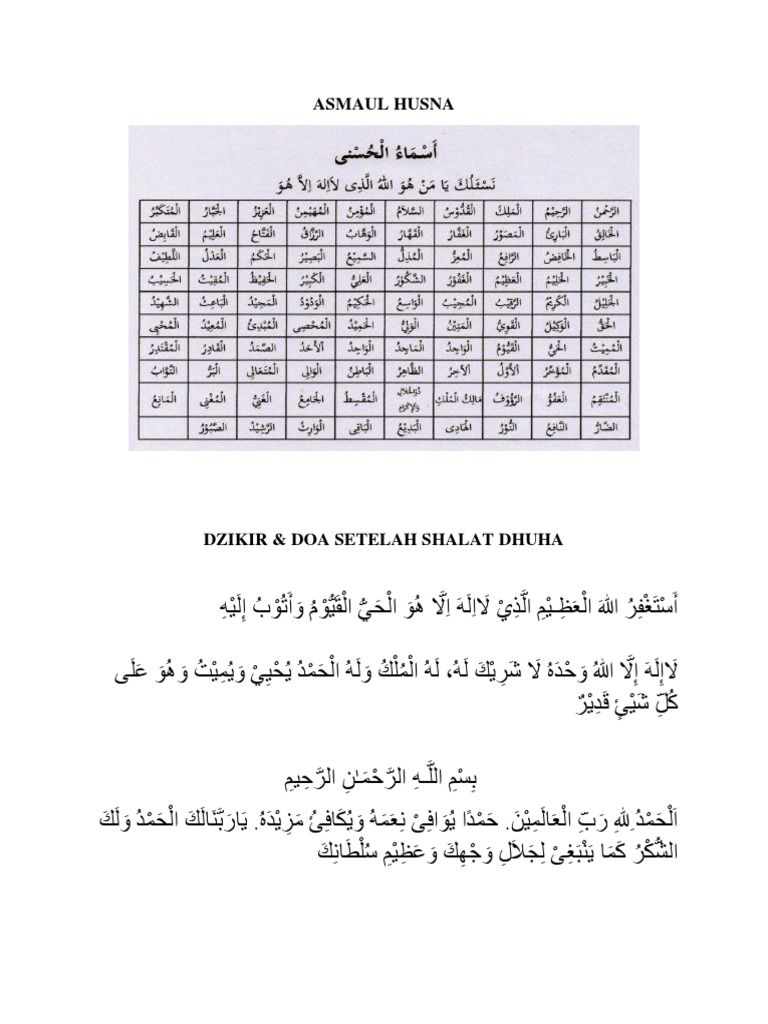 ASMAUL HUSNA
أَسْمَاءُ الْحُسْنى
نَسْئَلُكَ يَا مَنْ هُوَ اللهُ الَّذِى لاَاِلهَ اِلاَّ هُوَ
الرَّحْمٰنُ الرَّحِيْمُ الْمَلِكُ الْقُدُّوْسُ السَّلاَمُ الْمُؤْمِنُ الْمُهَيْمِنُ الْعَزِيْزُ الْجَبَّارُ الْمُتَكَبِّرُ
الْخَالِقُ الْبَارِئُ الْمُصَوِّرُ الْغَفَّارُ الْقَهَّارُ الْوَهَّابُ الرَّزَّاقُ الْفَتَّاحُ الْعَلِيْمُ الْقَابِضُ
الْبَاسِطُ الْخَافِضُ الرَّافِعُ الْمُعِزُّ الْمُذِلُّ السَّمِيْعُ الْبَصِيْرُ الْحَكَمُ الْعَدْلُ اللَّطِيْفُ
الْخَبِيْرُ الْحَلِيْمُ الْعَظِيْمُ الْغَفُوْرُ الشَّكُوْرُ الْعَلِيُّ الْكَبِيْرُ الْحَفِيْظُ الْمُقِيْتُ الْحَسِيْبُ
الْجَلِيْلُ الْكَرِيْمُ الرَّقِيْبُ الْمُجِيْبُ الْوَاسِعُ الْحَكِيْمُ الْوَدُوْدُ الْمَجِيْدُ الْبَاعِثُ الشَّهِيْدُ
الْحَقُّ الْوَكِيْلُ الْقَوِيُّ الْمَتِيْنُ الْوَلِيُّ الْحَمِيْدُ الْمُحْصِى الْمُبْدِئُ الْمُعِيْدُ الْمُحْيِى
الْمُمِيْتُ الْحَيُّ الْقَيُّوْمُ الْوَاجِدُ الْمَاجِدُ الْوَاحِدُ الْاَحَدُ الصَّمَدُ الْقَادِرُ الْمُقْتَدِرُ
الْمُقَدِّمُ الْمُؤَخِّرُ الْاَوَّلُ الْاٰخِرُ الظَّاهِرُ الْبَاطِنُ الْوَالِى الْمُتَعَالِى الْبَرُّ التَّوَّابُ
الْمُنْتَقِمُ الْعَفُوُّ الرَّؤُوْفُ مَالِكُ الْمُلْكِ ذُوالْجَلاَلِ وَالْاِكْرَامِ الْمُقْسِطُ الْجَامِعُ الْغَنِيُّ الْمُغْنِى الْمَانِعُ
الضَّارُّ النَّافِعُ النُّوْرُ الْهَادِى الْبَدِيْعُ الْبَاقِى الْوَارِثُ الرَّشِيْدُ الصَّبُوْرُ
DZIKIR & DOA SETELAH SHALAT DHUHA
أَسْتَغْفِرُ اللهَ الْعَظِـيْمِ الَّذِيْ لَااِلَهَ اِلَّا هُوَ الْحَيُّ الْقَيُّوْمُ وَأَتُوْبُ إِلَيْهِ
لَاإِلَهَ إِلَّا اللهُ وَحْدَهُ لَا شَرِيْكَ لَهُ، لَهُ الْمُلْكُ وَلَهُ الْحَمْدُ يُحْيِيْ وَيُمِيْتُ وَهُوَ عَلَى
كُلِّ شَيْئٍ قَدِيْرٌ
بِسْمِ اللَّـهِ الرَّحْمَـٰنِ الرَّحِيمِ
اَلْحَمْدُ لِلهِ رَبِّ الْعَالَمِيْنَ. حَمْدًا يُوَافِىْ نِعَمَهُ وَيُكَافِىُٔ مَزِيْدَهُ. يَارَبَّنَالَكَ الْحَمْدُ وَلَكَ
الشُّكْرُ كَمَا يَنْبَغِىْ لِجَلاَلِ وَجْهِكَ وَعَظِيْمِ سُلْطَانِكَ